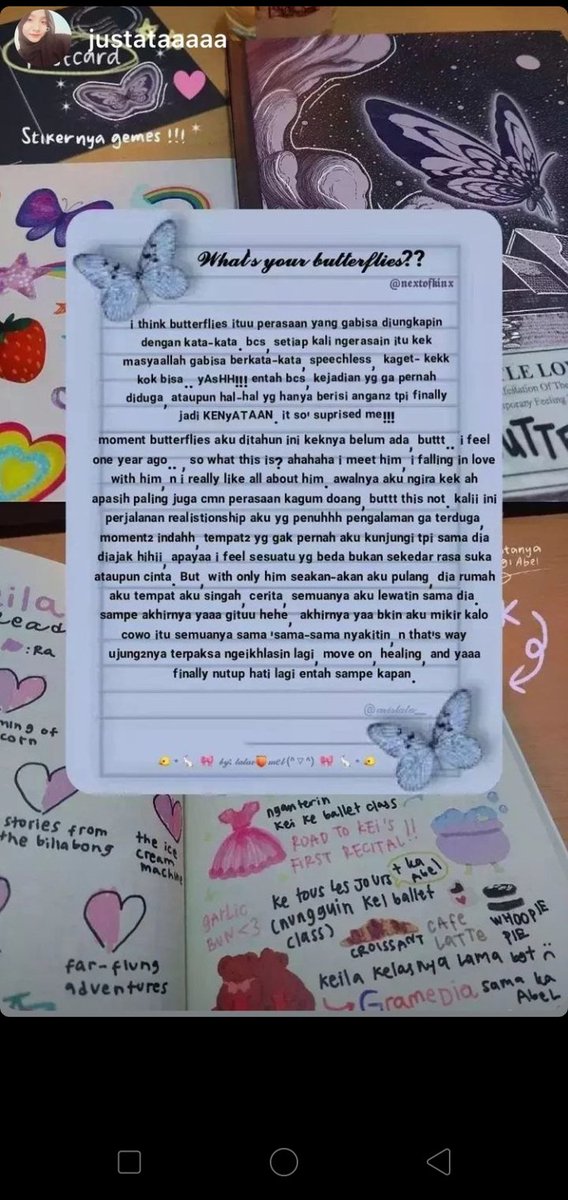 justataaaaa
Stikernya gemes !!!
What's your butterflies??
@nextofkinx
i think butterflies ituu perasaan yang gabisa diungkapin
dengan kata-kata. bcs, setiap kali ngerasain itu kek
masyaallah gabisa berkata-kata, speechless, kaget- kekk
kok bisa.. yAsHH!!! entah bcs, kejadian yg ga pernah
diduga, ataupun hal-hal yg hanya berisi angan2 tpi finally
jadi KENyATAAN. it so' suprised me!!!
moment butterflies aku ditahun ini keknya belum ada, buttt.. i feel
one year ago.. , so what this is? ahahaha i meet him, i falling in love
with him, n i really like all about him. awalnya aku ngira kek ah
apasih paling juga cmn perasaan kagum doang, buttt this not. kalii ini
perjalanan realistionship aku yg penuhhh pengalaman ga terduga,
moment2 indahh, tempat2 yg gak pernah aku kunjungi tpi sama dia
diajak hihii, apayaa i feel sesuatu yg beda bukan sekedar rasa suka
ataupun cinta. But, with only him seakan-akan aku pulang, dia rumah
aku tempat aku singah, cerita, semuanya aku lewatin sama dia.
sampe akhirnya yaaa gituu hehe, akhirnya yaa bkin aku mikir kalo
cowo itu semuanya sama 'sama-sama nyakitin, n that's way
ujung2nya terpaksa ngeikhlasin lagi, move on, healing, and yaaa
finally nutup hati lagi entah sampe kapan.
by:
(^▽^)
LE LO
Feeling
: Ra
stories from
the billabong
the ice
cream
machine
far-flung
adventures
nganterin
Kei ke ballet class
ROAD TO KEI'S
FIRST RECITAL!!
+ ka
Abel
Ke tous les JOURS
(nungguin Kei ballet
class)
GARLIC
BUN <3
CROISSANT
CAFE
LATTE
WHOOPIE
PIE
Keila kelasnya lama bgt
Gramedia sama ka
Abel